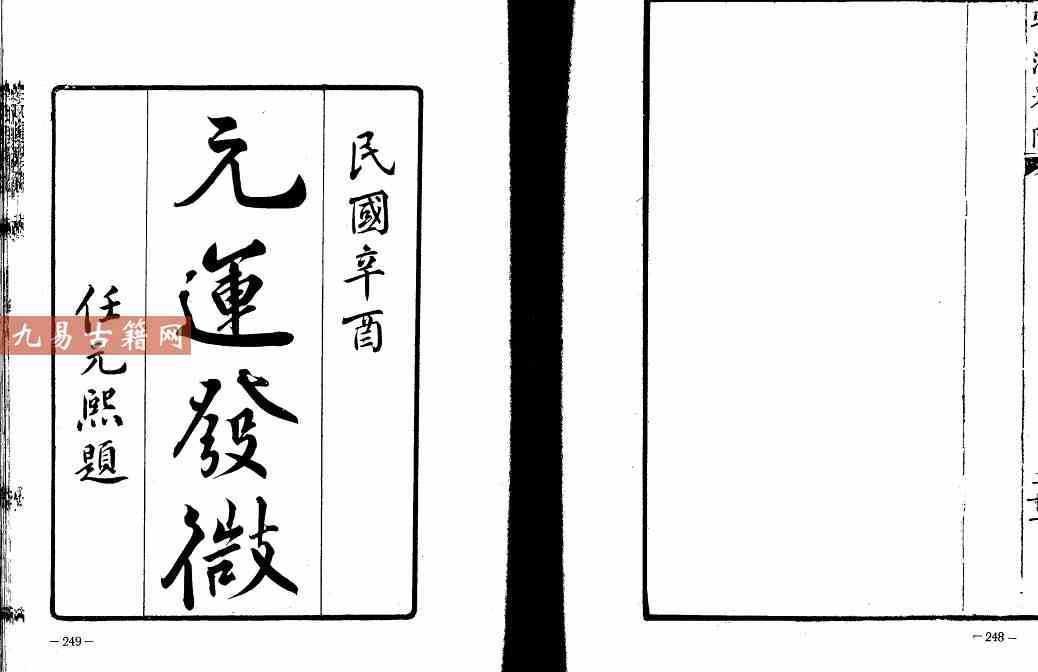 民國辛酉
元運發微
任元熙題
九易古籍网
—249—
—248—